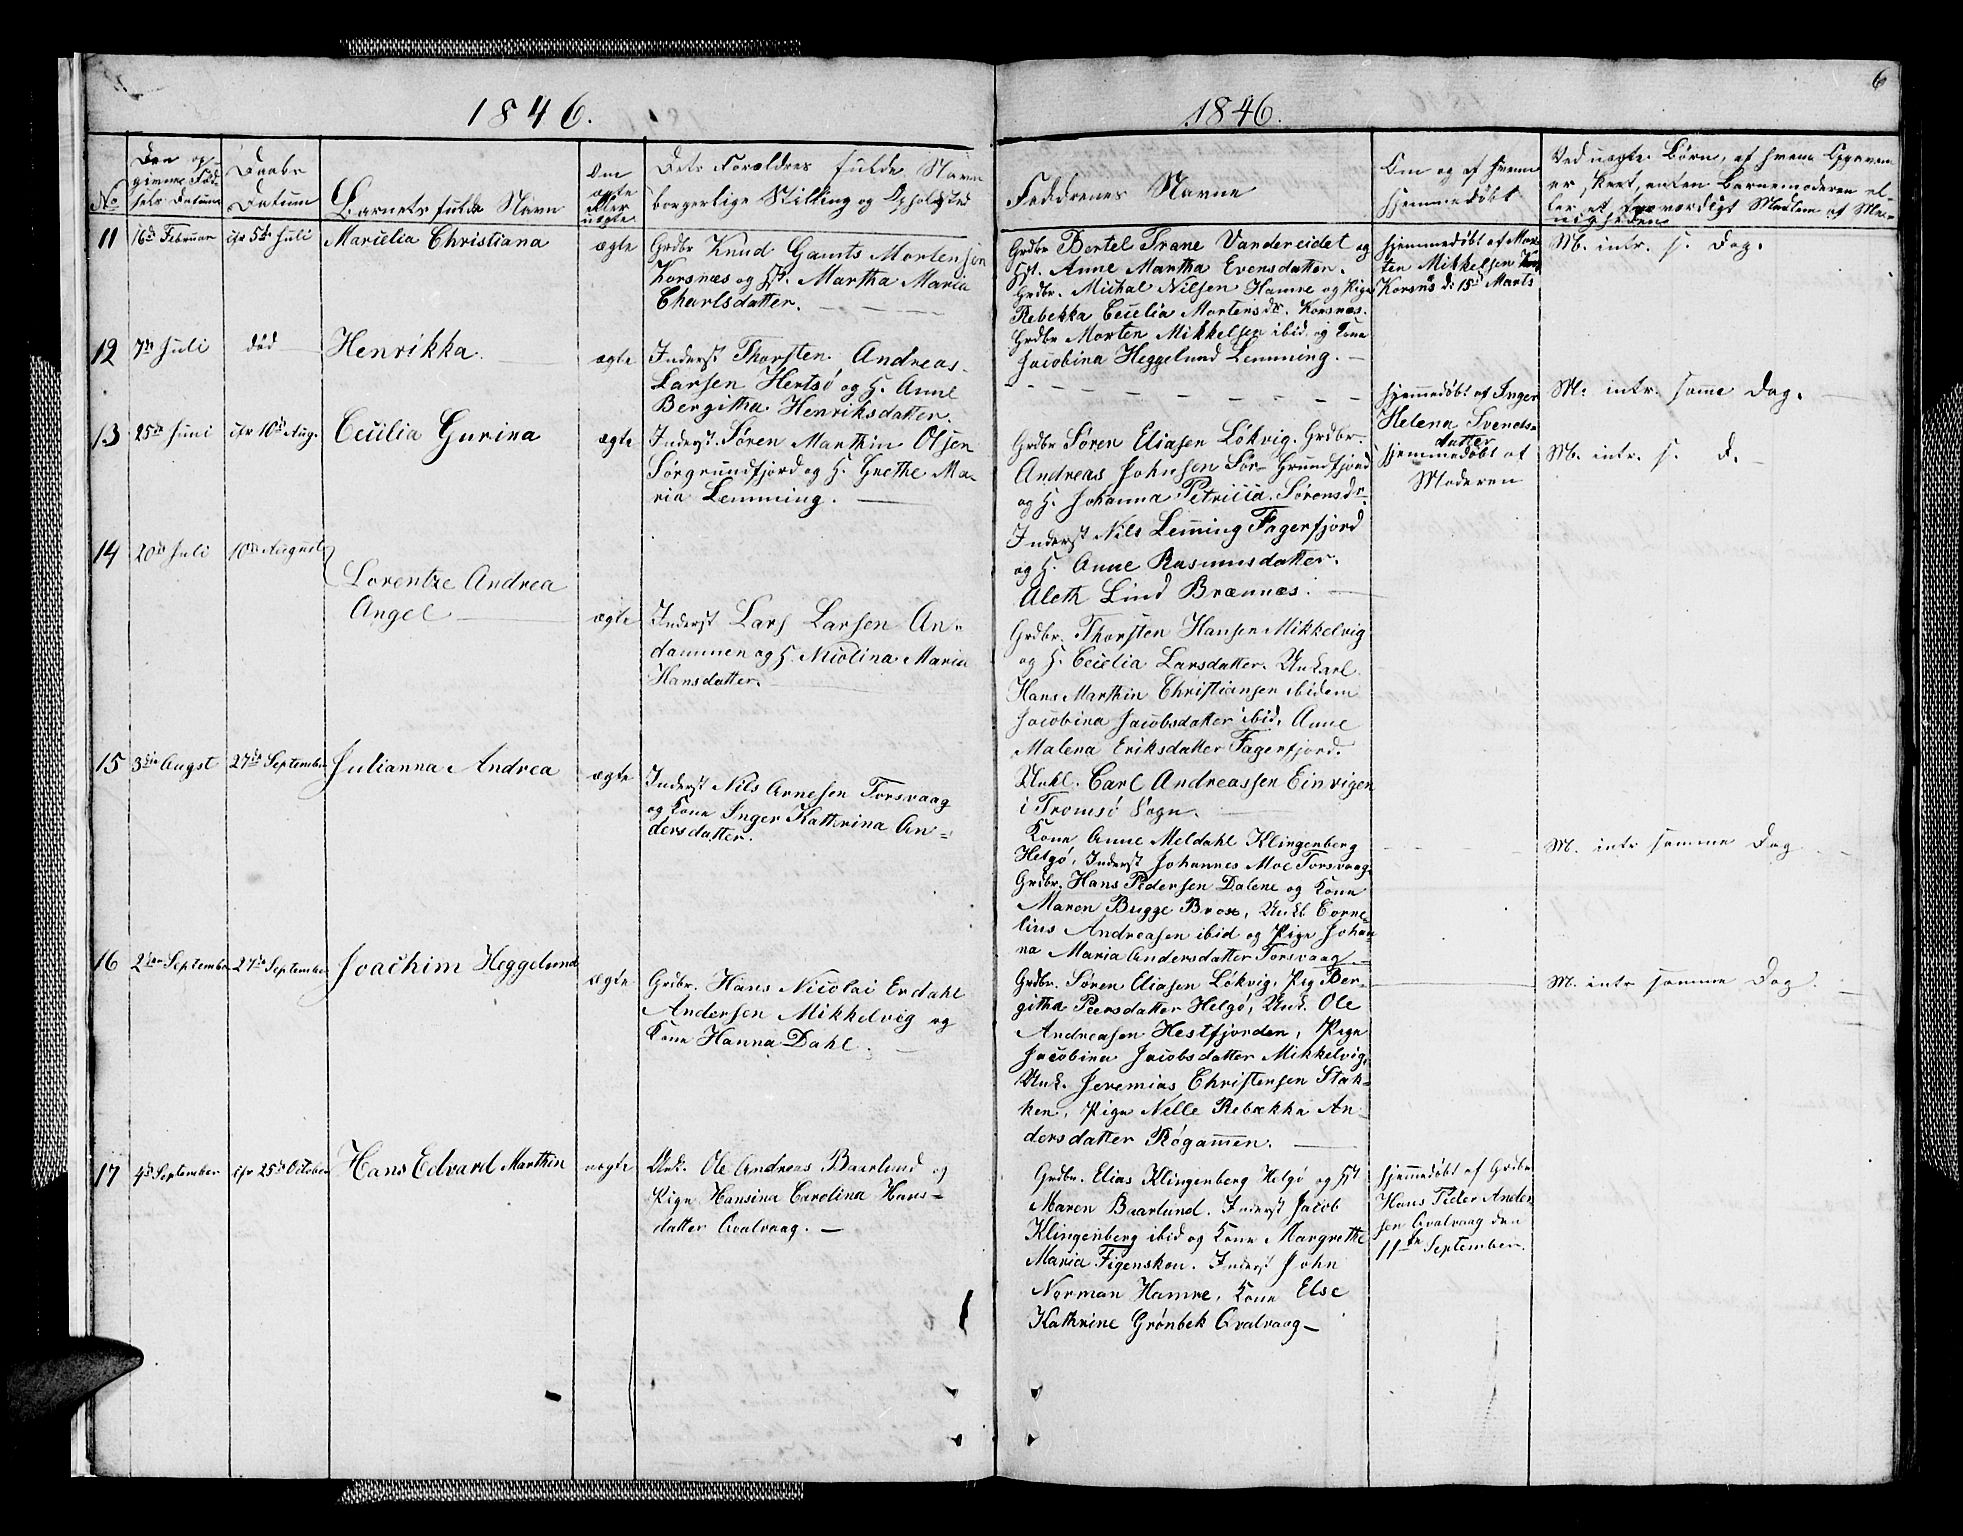 1846.
1846.
6
No
Den op-
givene Fød-
sels Datum
Daabs
Datum
Barnets fulde Navn
Om
ægte
eller
uægte
Dets Forældres fulde Navn
borgerlige Stilling og Opholdsted
Faddernes Navne
Om og af hvem
hjemmedøbt
Ved uægte Børn, af hvem Opgaven
er skeet, enten Barnemoderen el-
ler et troværdigt Medlem af Me-
nigheden
11
16d Februar
cfr 5te Juli
Maricelia Christiana
ægte
Grdbr Knud Gamts Mortensen
Korsnæs og Hst. Martha Maria
Charlsdatter.
Grdbr Bertel Trane Vandereidet og
Hst. Anne Martha Evensdatter.
Grdbr. Michal Nilsen Hamre og Pige
Rebekka Cecelia Mortensdr. Korsnæs.
Grdbr Morten Mikkelsen ibid og Kone
Jacobina Heggelund Lemming.
hjemmedøbt af Mor-
ten Mikkelsen
Korsnæs d: 15de Marts
M. intr. s. Dag.
12
7de Juli
død
Henrikka
ægte
Inderst Thorsten Andreas
Larsen Hertsø og H. Anne
Bergitha Henriksdatter.
hjemmedøbt af Inger
Helena Svends-
datter
M. intr. same Dag.
13
25de Juni
cfr 10de Aug.
Cecilia Gurina
ægte
Inderst Søren Marthin Olsen
Sørgrundfjord og H. Grethe Ma-
ria Lemming.
Grdbr Søren Eliasen Løkvig. Grdbr.
Andreas Johnsen Sør-Grundfjord
og H. Johanna Petricia Sørensdr.
Inderst Nils Lemming Fagerfjord
og H. Anne Rasmusdatter.
Aleth Lind Brænnæs.
hjemmedøbt af
Moderen
M. intr. s. D.
14
20de Juli
10de August
Lorentze Andrea
Angel
ægte
Inderst Lars Larsen An-
dammen og H. Nicolina Maria
Hansdatter.
Grdbr. Thorsten Hansen Mikkelvig
og H. Cecelia Larsdatter. Unkarl
Hans Marthin Christiansen ibidem
Jacobina Jacobsdatter ibid. Anne
Malena Eriksdatter Fagerfjord.
15
3die Augst
27de September
Julianna Andrea
ægte
Inderst Nils Arnesen Torsvaag
og Kone Inger Kattrina An-
dersdatter.
Unkl. Carl Andreassen Einvigen
i Tromsø Sogn.
Kone Anne Meldahl Klingenberg
Helgø, Inderst Johannes Moe Torsvaag
Grdbr. Hans Pedersen Dalene og Kone
Maren Bugge Brox, Unkl Corne-
lius Andreasen ibid og Pige Johan-
na Maria Andersdatter Torsvaag
M. intr samme Dag
16
2den September
27de September
Joachim Heggelund
ægte
Grdbr. Hans Nicolai Erdahl
Andersen Mikkelvig og
Kone Hanna Dahl.
Grdbr. Søren Eliasen Løkvig, Pig Ber-
githa Peersdatter Helgø, Unk. Ole
Andreasen Hestfjorden, Pige
Jacobina Jacobsdatter Mikkelvig,
Unk. Jeremias Christensen Stak-
ken, Pige Nelle Rebekka An-
dersdatter Røgammen.
M. intr samme Dag.
17
4de September
cfr 25de October
Hans Edvard Marthin
uægte
Unk. Ole Andreas Baarlund og
Pige Hansina Carolina Hans-
datter Qvalvaag.
Grdbr. Elias Klingenberg Helgø og Hst
Maren Baarlund. Inderst Jacob
Klingenberg ibid og Kone Margrethe
Maria Figenskou. Inderst John
Norman Hamre, Kone Else
Kathrine Grønbek Qvalvaag
hjemmedøbt af Grdbr
Hans Peder Ander-
sen Qvalvaag den
11te September.